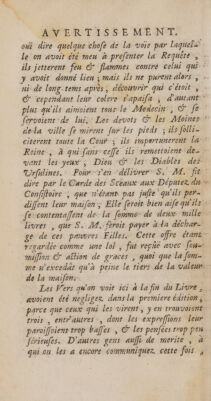 AVERTISSEMENT.
oüi dire quelque chose de la voie par laquel-
le on avoit été meu à presenter la Requête ,
ils jetterent feu & flammes contre celui qui
y avoit donné lieu ; mais ils ne purent alors ,
ni de long-tems aprés , découvrir qui c'étoit ,
& cependant leur colere s'apaisa , d'autant
plus qu'ils aimoient tous le Medecin , & se
servoient de lui. Les devots & les Moines
de la ville se mirent sur les pieds ; ils solli-
citerent toute la Cour ; ils importunerent la
Reine , à qui sans cesse ils remettoient de-
vant les yeux , Dieu & les Diables des
Ursulines. Pour s'en délivrer S. M. fit
dire par le Garde des Sceaux aux Députez du
Consistoire , que n'étant pas juste qu'ils per-
dissent leur maison ; Elle seroit bien aise qu'ils
se contentassent de la somme de deux mille
livres , que S. M. feroit payer à la déchar-
ge de ces pauvres Filles. Cette offre étant
regardée comme une loi , fut reçuë avec sou-
mission & action de graces , quoi que la som-
me n'excedât qu'à peine le tiers de la valeur
de la maison.
Les Vers qu'on voit ici à la fin du Livre ,
avoient été negligez dans la premiere édition ,
parce que ceux qui les virent , y en trouvoient
trois , entr'autres , dont les expressions leur
paroissoient trop basses , & les pensées trop peu
serieuses. D'autres gens aussi de merite , à
qui on les a encore communiquez cette fois ,